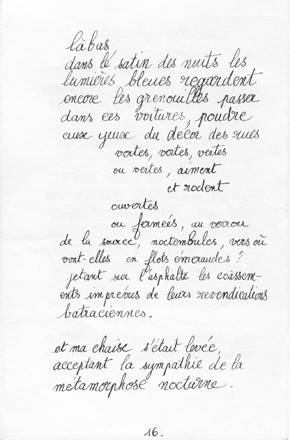 làbas
dans le satin des nuits les
lumières bleues regardent
encore les grenouilles passer
dans ces voitures, poudre
aux yeux du décor des rues
vertes, vertes, vertes
ou vertes, aiment
et rodent
ouvertes
ou fermées, au verrou
de la source, noctembules, vers où
vont-elles en flots émeraudes ?
jetant sur l'asphalte les coassem-
ents imprévus de leurs revendications
batraciennes.
et ma chaise s'était levée,
acceptant la sympathie de la
métamorphose nocturne.
16.